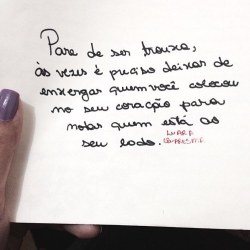 Pare de ser trouxa,
às vezes é preciso deixar de
enxergar quem você colocou
no seu coração para
notar quem está ao
seu lado.